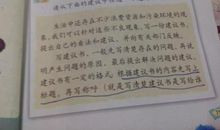 请从下面的建议中挑选一
生活中还存在不少浪费资源和污染环境的现
象，我们可以针对这些不良现象，写一份建议书，
提出自己的看法和建议，并向有关部门反映。
写建议书，一般先写清楚存在的问题，再说
明产生问题的原因，最后提出解决问题的建议。
建议书有一定的格式。根据建议书的内容先写上
标题，再写称呼（就是写清楚建议书是写给谁